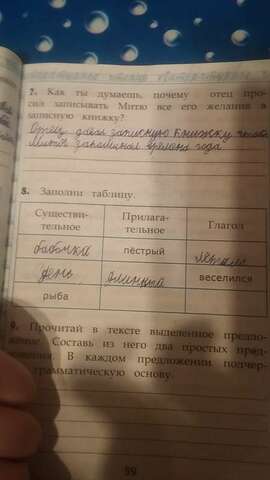 7. Как ты думаешь, почему отец про-
сил записывать Митю все его желания в
записную книжку?
Отец дал записную книжку чтобы
Митя запомнил времена года
8. Заполни таблицу.
Существи-
тельное
Прилага-
тельное
Глагол
бабочка
пёстрый
летала
день
длинный
веселился
рыба
9. Прочитай в тексте выделенное предло-
жение. Составь из него два простых пред-
ложения. В каждом предложении подчер-
грамматическую основу.
59